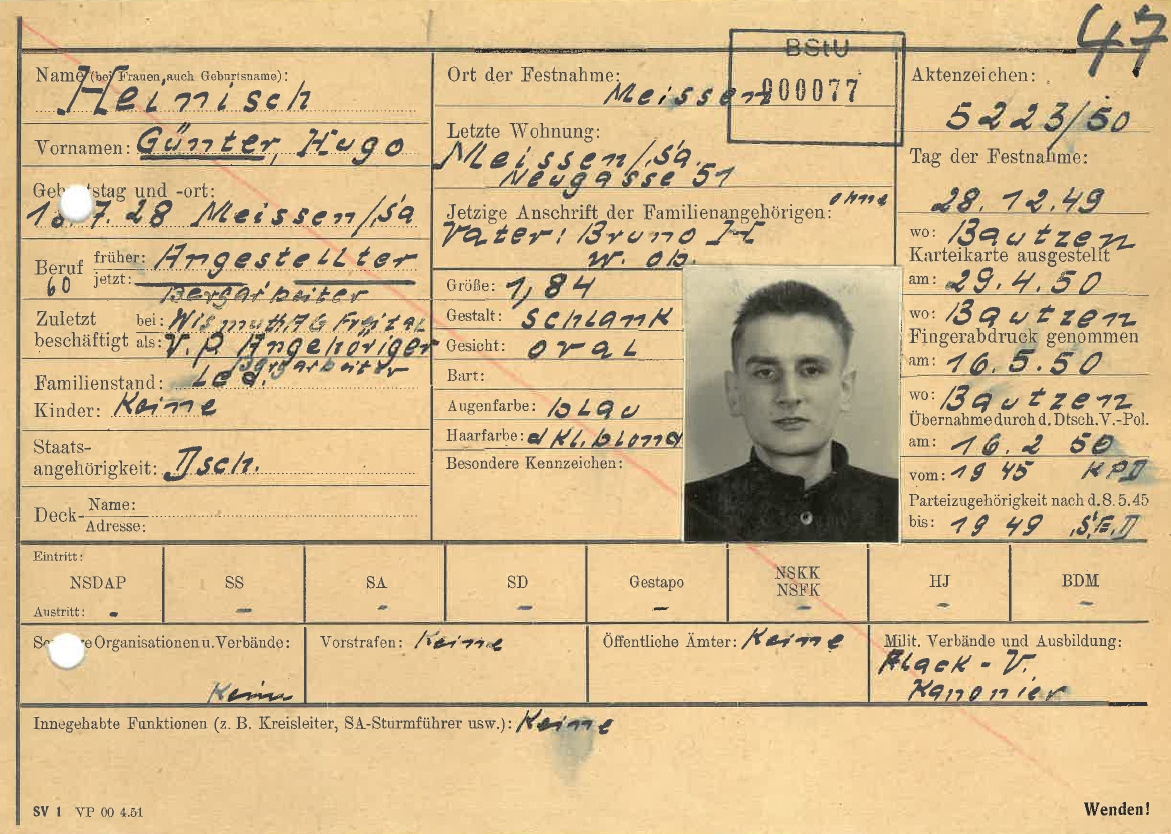 47
BStU
000077
Name (bei Frauen auch Geburtsname):
Heinisch
Vornamen: Günter, Hugo
Geburtstag und -ort:
18.7.28 Meissen/Sa
Beruf früher: Angestellter
60 jetzt: Bergarbeiter
Zuletzt beschäftigt bei: Wismuth AG Freital
als: V.P. Angehöriger
Bergarbeiter
Familienstand: Led.
Kinder: Keine
Staats-
angehörigkeit: Dsch.
Deck- Name:
Adresse:
Ort der Festnahme:
Meissen
Letzte Wohnung:
Meissen/Sa.
Neugasse 51
Jetzige Anschrift der Familienangehörigen: ohne
Vater: Bruno H
w. ob.
Größe: 1,84
Gestalt: schlank
Gesicht: oval
Bart:
Augenfarbe: blau
Haarfarbe: dkl. blond
Besondere Kennzeichen:
Aktenzeichen:
5223/50
Tag der Festnahme:
28.12.49
wo: Bautzen
Karteikarte ausgestellt
am: 29.4.50
wo: Bautzen
Fingerabdruck genommen
am: 16.5.50
wo: Bautzen
Übernahme durch d. Dtsch. V.-Pol.
am: 16.2 50
vom: 1945 KPD
Parteizugehörigkeit nach d. 8.5.45
bis: 1949 S.E.D
Eintritt:
NSDAP SS SA SD Gestapo NSKK NSFK HJ BDM
Austritt: - - - - - - - -
Organisationen u. Verbände:
Keine
Vorstrafen: Keine
Öffentliche Ämter: Keine
Milit. Verbände und Ausbildung:
Flack - V.
Kanonier
Innegehabte Funktionen (z. B. Kreisleiter, SA-Sturmführer usw.): Keine
SV 1 VP 00 4.51
Wenden!